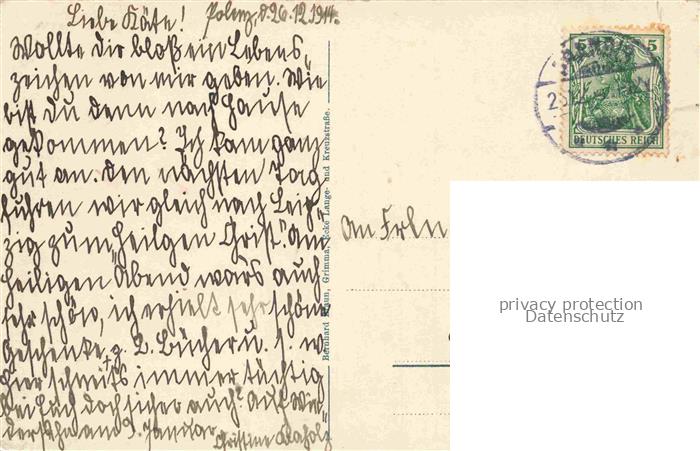 Liebe Käte! Polenz, d. 26.12.1914.
Wollte dir bloß ein Lebens-
zeichen von mir geben. Wie
bist Du denn nach Hause
gekommen? Ich kam ganz
gut an. Den nächsten Tag
fuhren wir gleich nach Leip-
zig zum „heilgen Christ“. Am
heiligen Abend wars auch
sehr schön, ich erhielt sehr schöne
Geschenke, z. B. Bücher u. s. w.
Hier schneits immer tüchtig
bei Euch doch sicher auch? Auf Wie-
dersehn am 9. Januar
Christine
Bernhard Braun, Grimma, Ecke Lange- und Kreuzstraße.
5
DEUTSCHES REICH
An Frln
privacy protection
Datenschutz